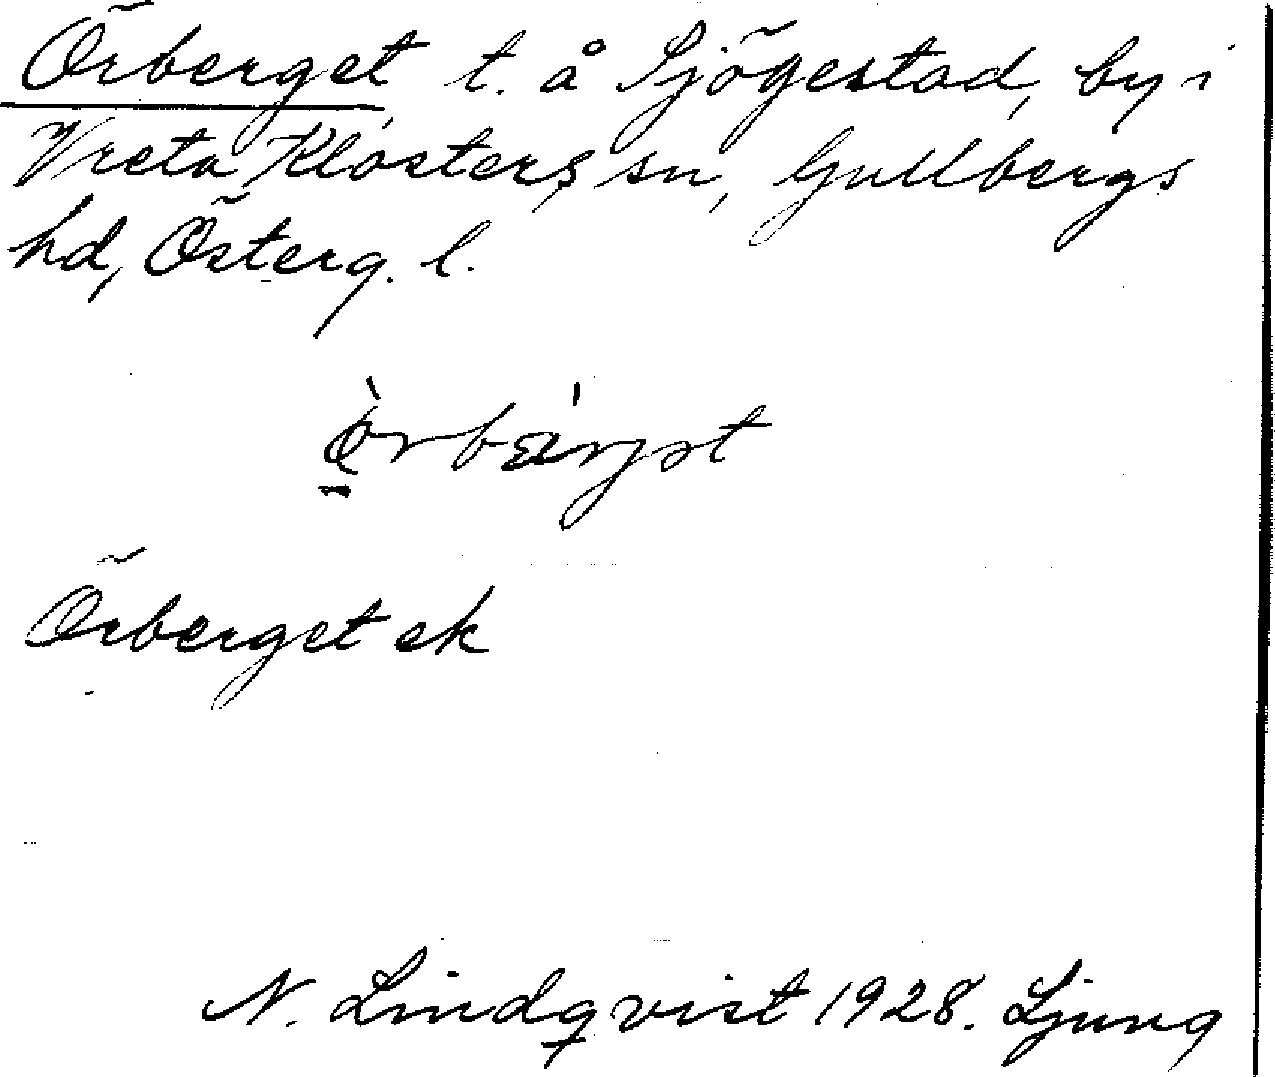 Örberget, t. å Sjögestad, by i
Vreta Klosters sn, Gullbergs
hd, Österg. l.
Örberget ek
N. Lindqvist 1928. Ljung